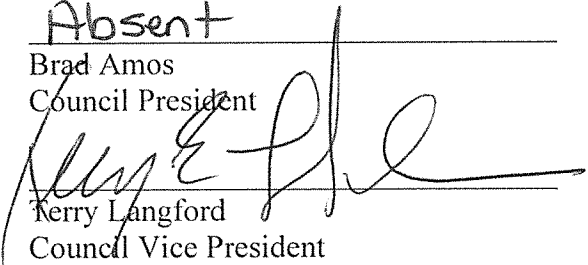 Absent
Brad Amos
Council President
Terry Langford
Council Vice President